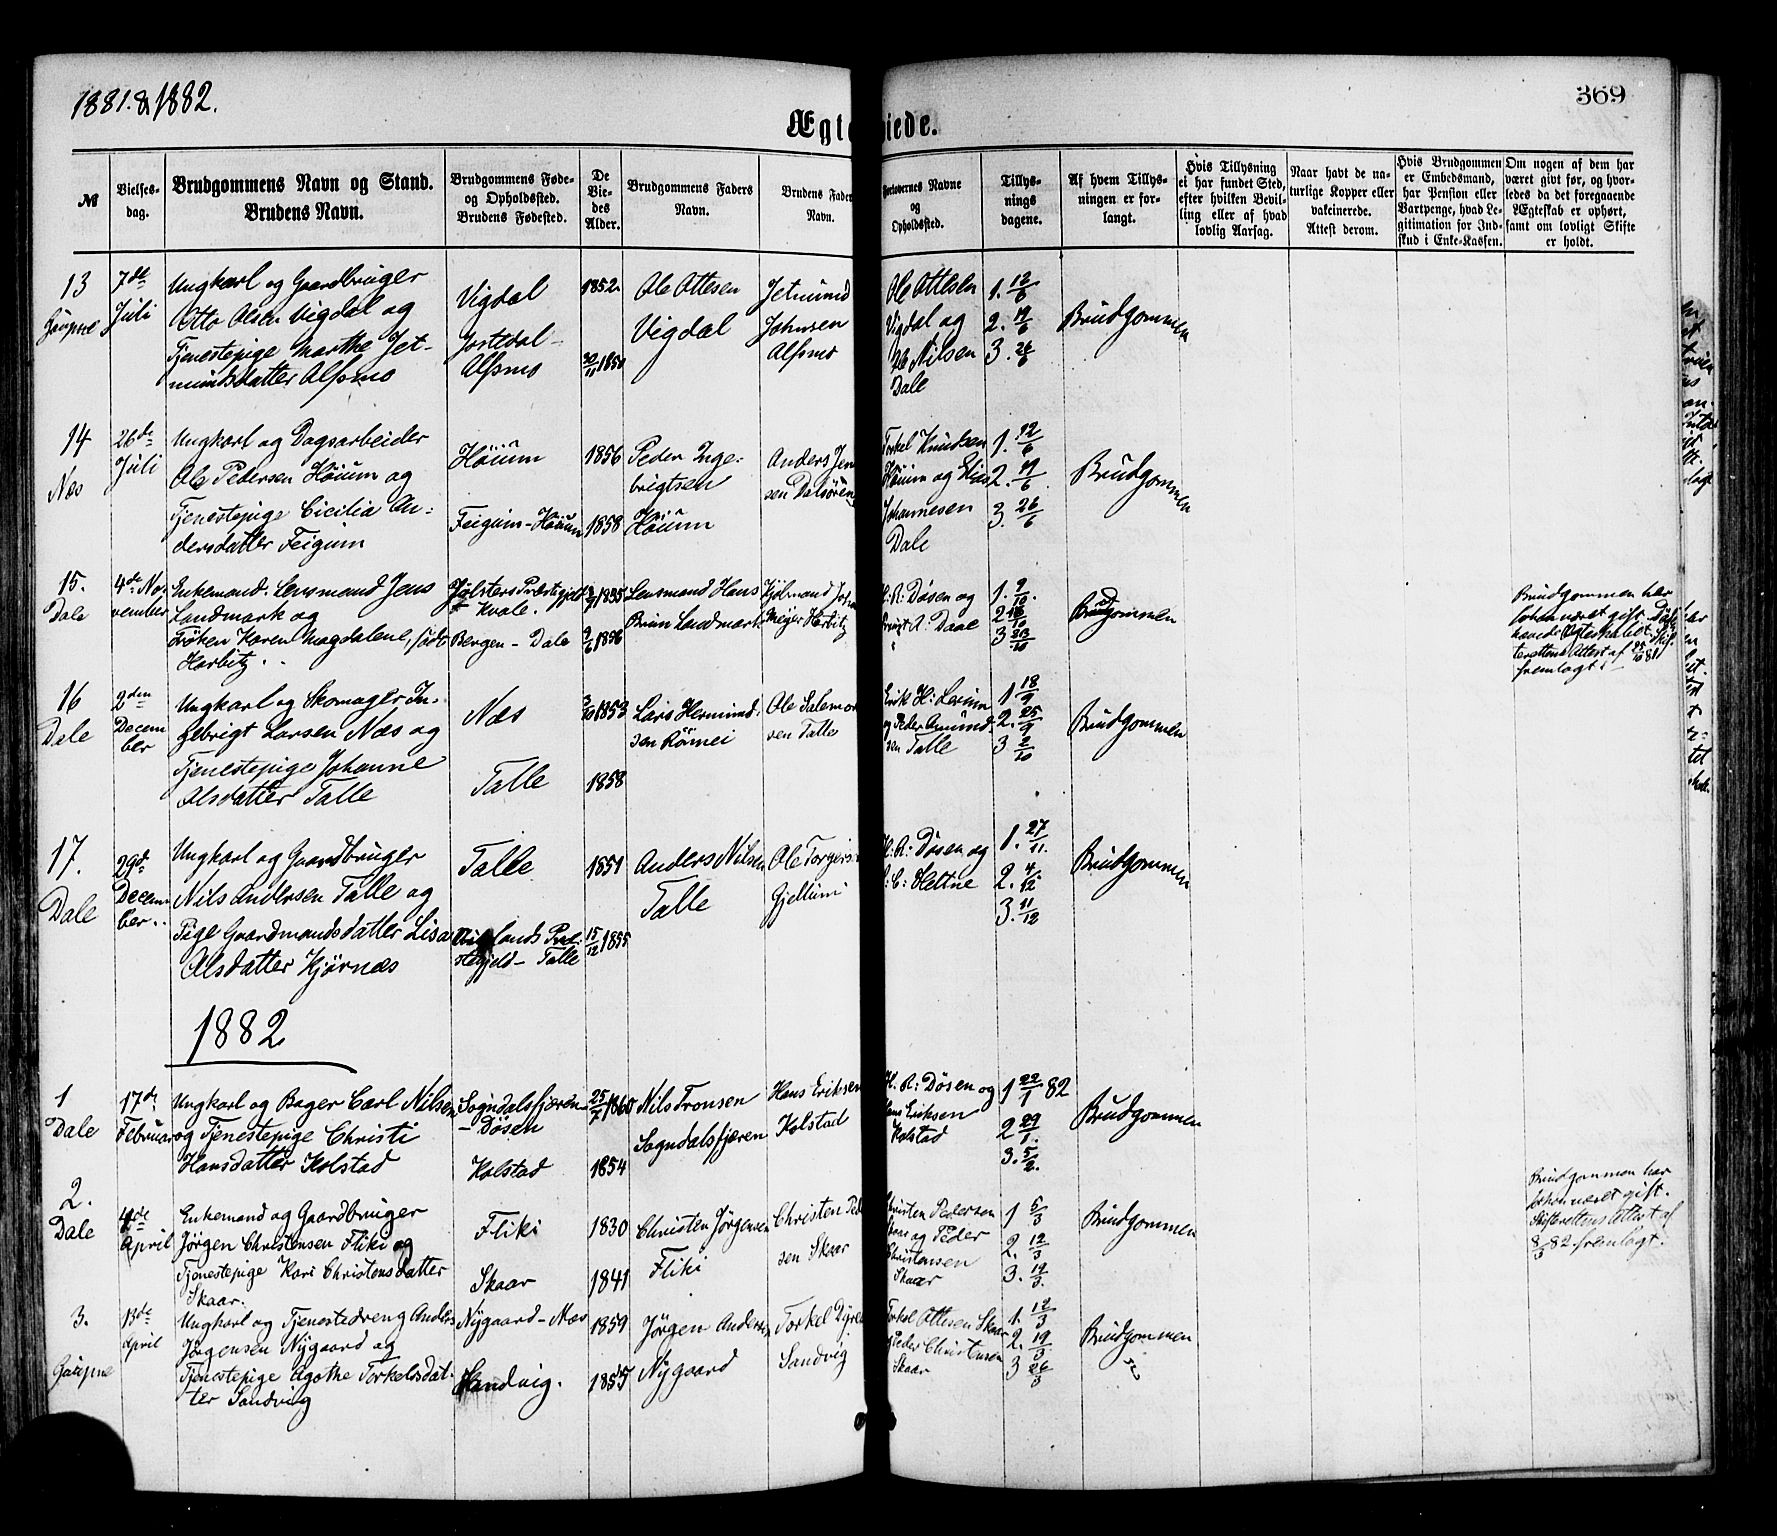 1881.&1882.
369
Ægte
iede.
№
Vielses-
dag.
Brudgommens Navn og Stand.
Brudens Navn.
Brudgommens Føde-
og Opholdssted.
Brudens Fødested.
De
Vie-
des
Alder.
Brudgommens Faders
Navn.
Brudens Fader
Navn.
Forlovernes Navne
og
Opholdssted.
Tillys-
nings
dagene.
Af hvem Tillys-
ningen er for-
langt.
Hvis Tillysning
ei har fundet Sted,
efter hvilken Bevil-
ling eller af hvad
lovlig Aarsag.
Naar havt de na-
turlige Kopper eller
vakcinerede.
Attest derom.
Hvis Brudgommen
er Embedsmand,
har Pension eller
Vartpenge, hvad Le-
gitimation for Ind-
skud i Enke-Kassen.
Om nogen af dem har
været givt før, og hvor-
ledes da det foregaaende
Ægteskab er ophørt,
samt om lovligt Skifte
er holdt.
13
Gaupne
7de
Juli
Ungkarl og Gaardbruger
Otto Olsen Vigdal og
Tjenestepige Marthe Jet-
mundsdatter Alsmo
Vigdal
Jostedal-
Alsmo
1852
30/11 1850
Ole Ottesen
Vigdal
Jetmund
Johnsen
Alsmo
Ole Ottesen
Vigdal og
Ole Nilsen
Dale
1. 12/6
2. 19/6
3. 26/6
Brudgommen
14
Næs
26de
Juli
Ungkarl og Dagsarbeider
Ole Pedersen Høium og
Tjenestepige Cicilia An-
dersdatter Feigum
Høium
Feigum-Høium
1856
1858
Peder Inge-
brigtsen
Høium
Anders Jen
sen Dalsøren
Torkel Knudsen
Høium og Elias
Johannesen
Dale
1. 12/6
2. 19/6
3. 26/6
Brudgommen
15.
Dale
4de No-
vember
Enkemand. Lensmand Jens
Landmark og
Frøken Karen Magdalene,
Harbitz
Jølsters Præstegjeld
- Kvale.
Bergen - Dale
1835
1856
Lensmand Hans
Brun Landmark
Meyer Harbitz
H. R: Døsen og
A: Daae
1. 9/10.
2 16/10
3 23/10
Brudgommen
Brudgommen har
forhen været gift. Døds
havde Ægteskabet. Skif-
terettens Attest af 81
fremlagt.
16
Dale
2den
Decem
ber
Ungkarl og Skomager In-
gebrigt Larsen Næs og
Tjenestepige Johanne
Olsdatter Talle
Næs
Talle
1853
1858
Lars Hermund-
sen Rømei
Ole Salemon
sen Talle
Erik H: Lerum
og Peder Amund-
sen Talle
1 18/9
2. 25/9
3 2/10
Brudgommen
17.
Dale
29de
Decem
ber..
Ungkarl og Gaardbruger
Nils Andersen Talle og
Pige Gaardmandsdatter Lisa
Olsdatter Kjørnæs
Talle
Præ-
stegjeld - Talle
1851
15/12 1855
Anders Nilsen
Talle
Ole Torgers
Gjellum
H: R: Døsen og
C: Hettne
1. 27/11.
2. 4/12
3. 11/12
Brudgommen
1882
1
Dale
17de
Februar
Ungkarl og Bager Carl Nilsen
og Tjenestepige Christi
Hansdatter Kolstad
Sogndalsfjæren-
- Døsen
Kolstad
25/7 1860
1854
Nils Tronsen
Sogndalsfjæren
Hans Eriksen
Kolstad
H. R: Døsen og
Hans Eriksen
Kolstad
1 22/1 82
2 29/1.
3. 5/2.
Brudgommen
2.
Dale
4de
April
Enkemand og Gaardbruger
Jørgen Christensen Fliki og
Tjenestepige Kari Christensdatter
Skaar.
Fliki
Skaar
1830
1841
Christen Jørgensen
Fliki
Christen Peder
sen Skaar
Christen Pedersen
Skaar og Peder
Christensen
Skaar
1 5/3
2. 12/3
3. 19/3.
Brudgommen
Brudgommen har
forhen været gift.
Skifterettens Attest af
8/3 82 fremlagt.
3.
Gaupne
13de
April
Ungkarl og Tjenestedreng Anders
Jørgensen Nygaard og
Tjenestepige Agathe Torkelsdat-
ter Sandvig
Nygaard-Næs
Sandvig.
1859
1855
Jørgen Andersen
Nygaard
Torkel
Sandvig
Torkel Ottesen Skaar
Peder Christensen
Skaar
1. 12/3
2. 19/3
3 26/3
Brudgommen